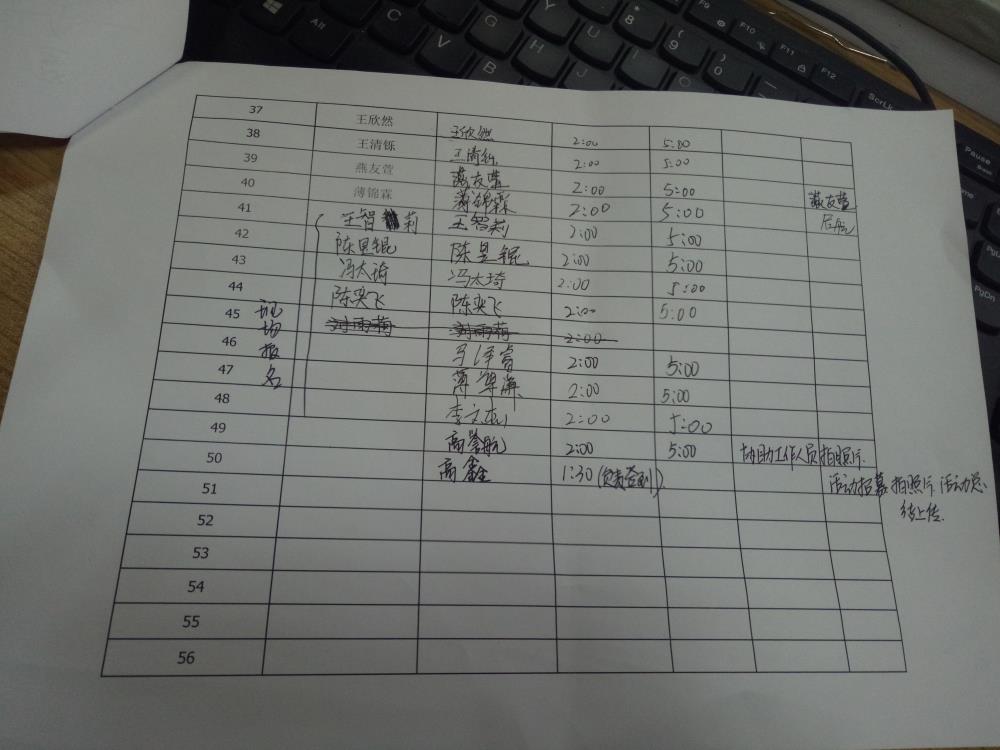 37 王欣然 王欣然 2:00 5:00
38 王清铄 王清铄 2:00 5:00
39 燕友萱 燕友萱 2:00 5:00 燕友萱
40 薄锦霖 薄锦霖 2:00 5:00 后航
41 王智莉 王智莉 2:00 5:00
42 陈昱锟 陈昱锟 2:00 5:00
43 冯太琦 冯太琦 2:00 5:00
44 陈奕飞 陈奕飞 2:00 5:00
45 刘雨莉 刘雨莉 2:00
现场报名
46 马泽睿 2:00 5:00
47 薄翠 2:00 5:00
48 李文 2:00 5:00
49 商誉航 2:00 5:00 协助工作人员拍照片.
50 商鑫 1:30(负责签到) 活动招募、拍照片、活动总
51 结上传.
52
53
54
55
56
Alt
C
V
G
B
H
U
N
J
8
9
0
F9
F10
F11
F12
ScrLk
Pause
Break
PgDn